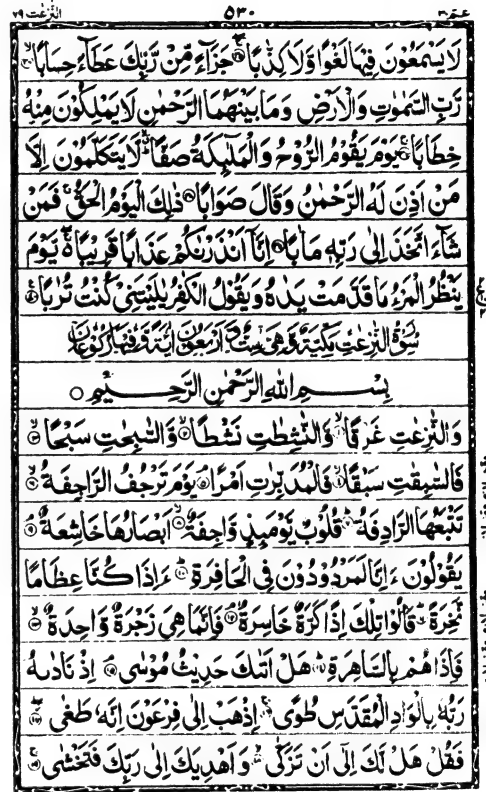 النّٰزعٰت ٧٩ ٥٣٠ عمّ ٣٠
لَا يَسْمَعُوْنَ فِيْهَا لَغْوًا وَّلَا كِذّٰبًا ﴿٣٥﴾ جَزَآءً مِّنْ رَّبِّكَ عَطَآءً حِسَابًا ﴿٣٦﴾
رَّبِّ السَّمٰوٰتِ وَالْاَرْضِ وَمَا بَيْنَهُمَا الرَّحْمٰنِ لَا يَمْلِكُوْنَ مِنْهُ
خِطَابًا ﴿٣٧﴾ يَوْمَ يَقُوْمُ الرُّوْحُ وَالْمَلٰٓئِكَةُ صَفًّا لَّا يَتَكَلَّمُوْنَ اِلَّا
مَنْ اَذِنَ لَهُ الرَّحْمٰنُ وَقَالَ صَوَابًا ﴿٣٨﴾ ذٰلِكَ الْيَوْمُ الْحَقُّ فَمَنْ
شَآءَ اتَّخَذَ اِلٰى رَبِّهٖ مَاٰبًا ﴿٣٩﴾ اِنَّآ اَنْذَرْنٰكُمْ عَذَابًا قَرِيْبًا يَّوْمَ
يَنْظُرُ الْمَرْءُ مَا قَدَّمَتْ يَدٰهُ وَيَقُوْلُ الْكٰفِرُ يٰلَيْتَنِيْ كُنْتُ تُرٰبًا ﴿٤٠﴾
سُوْرَةُ النّٰزِعٰتِ مَكِّيَّةٌ وَّهِيَ سِتٌّ وَّاَرْبَعُوْنَ اٰيَةً وَّفِيْهَا رُكُوْعَانِ
بِسْمِ اللهِ الرَّحْمٰنِ الرَّحِيْمِ
وَالنّٰزِعٰتِ غَرْقًا ﴿١﴾ وَّالنّٰشِطٰتِ نَشْطًا ﴿٢﴾ وَّالسّٰبِحٰتِ سَبْحًا ﴿٣﴾
فَالسّٰبِقٰتِ سَبْقًا ﴿٤﴾ فَالْمُدَبِّرٰتِ اَمْرًا ﴿٥﴾ يَوْمَ تَرْجُفُ الرَّاجِفَةُ ﴿٦﴾
تَتْبَعُهَا الرَّادِفَةُ ﴿٧﴾ قُلُوْبٌ يَّوْمَئِذٍ وَّاجِفَةٌ ﴿٨﴾ اَبْصَارُهَا خَاشِعَةٌ ﴿٩﴾
يَقُوْلُوْنَ ءَاِنَّا لَمَرْدُوْدُوْنَ فِى الْحَافِرَةِ ﴿١٠﴾ ءَاِذَا كُنَّا عِظَامًا
نَّخِرَةً ﴿١١﴾ قَالُوْا تِلْكَ اِذًا كَرَّةٌ خَاسِرَةٌ ﴿١٢﴾ فَاِنَّمَا هِيَ زَجْرَةٌ وَّاحِدَةٌ ﴿١٣﴾
فَاِذَا هُمْ بِالسَّاهِرَةِ ﴿١٤﴾ هَلْ اَتٰىكَ حَدِيْثُ مُوْسٰى ﴿١٥﴾ اِذْ نَادٰىهُ
رَبُّهٗ بِالْوَادِ الْمُقَدَّسِ طُوًى ﴿١٦﴾ اِذْهَبْ اِلٰى فِرْعَوْنَ اِنَّهٗ طَغٰى ﴿١٧﴾
فَقُلْ هَلْ لَّكَ اِلٰٓى اَنْ تَزَكّٰى ﴿١٨﴾ وَاَهْدِيَكَ اِلٰى رَبِّكَ فَتَخْشٰى ﴿١٩﴾